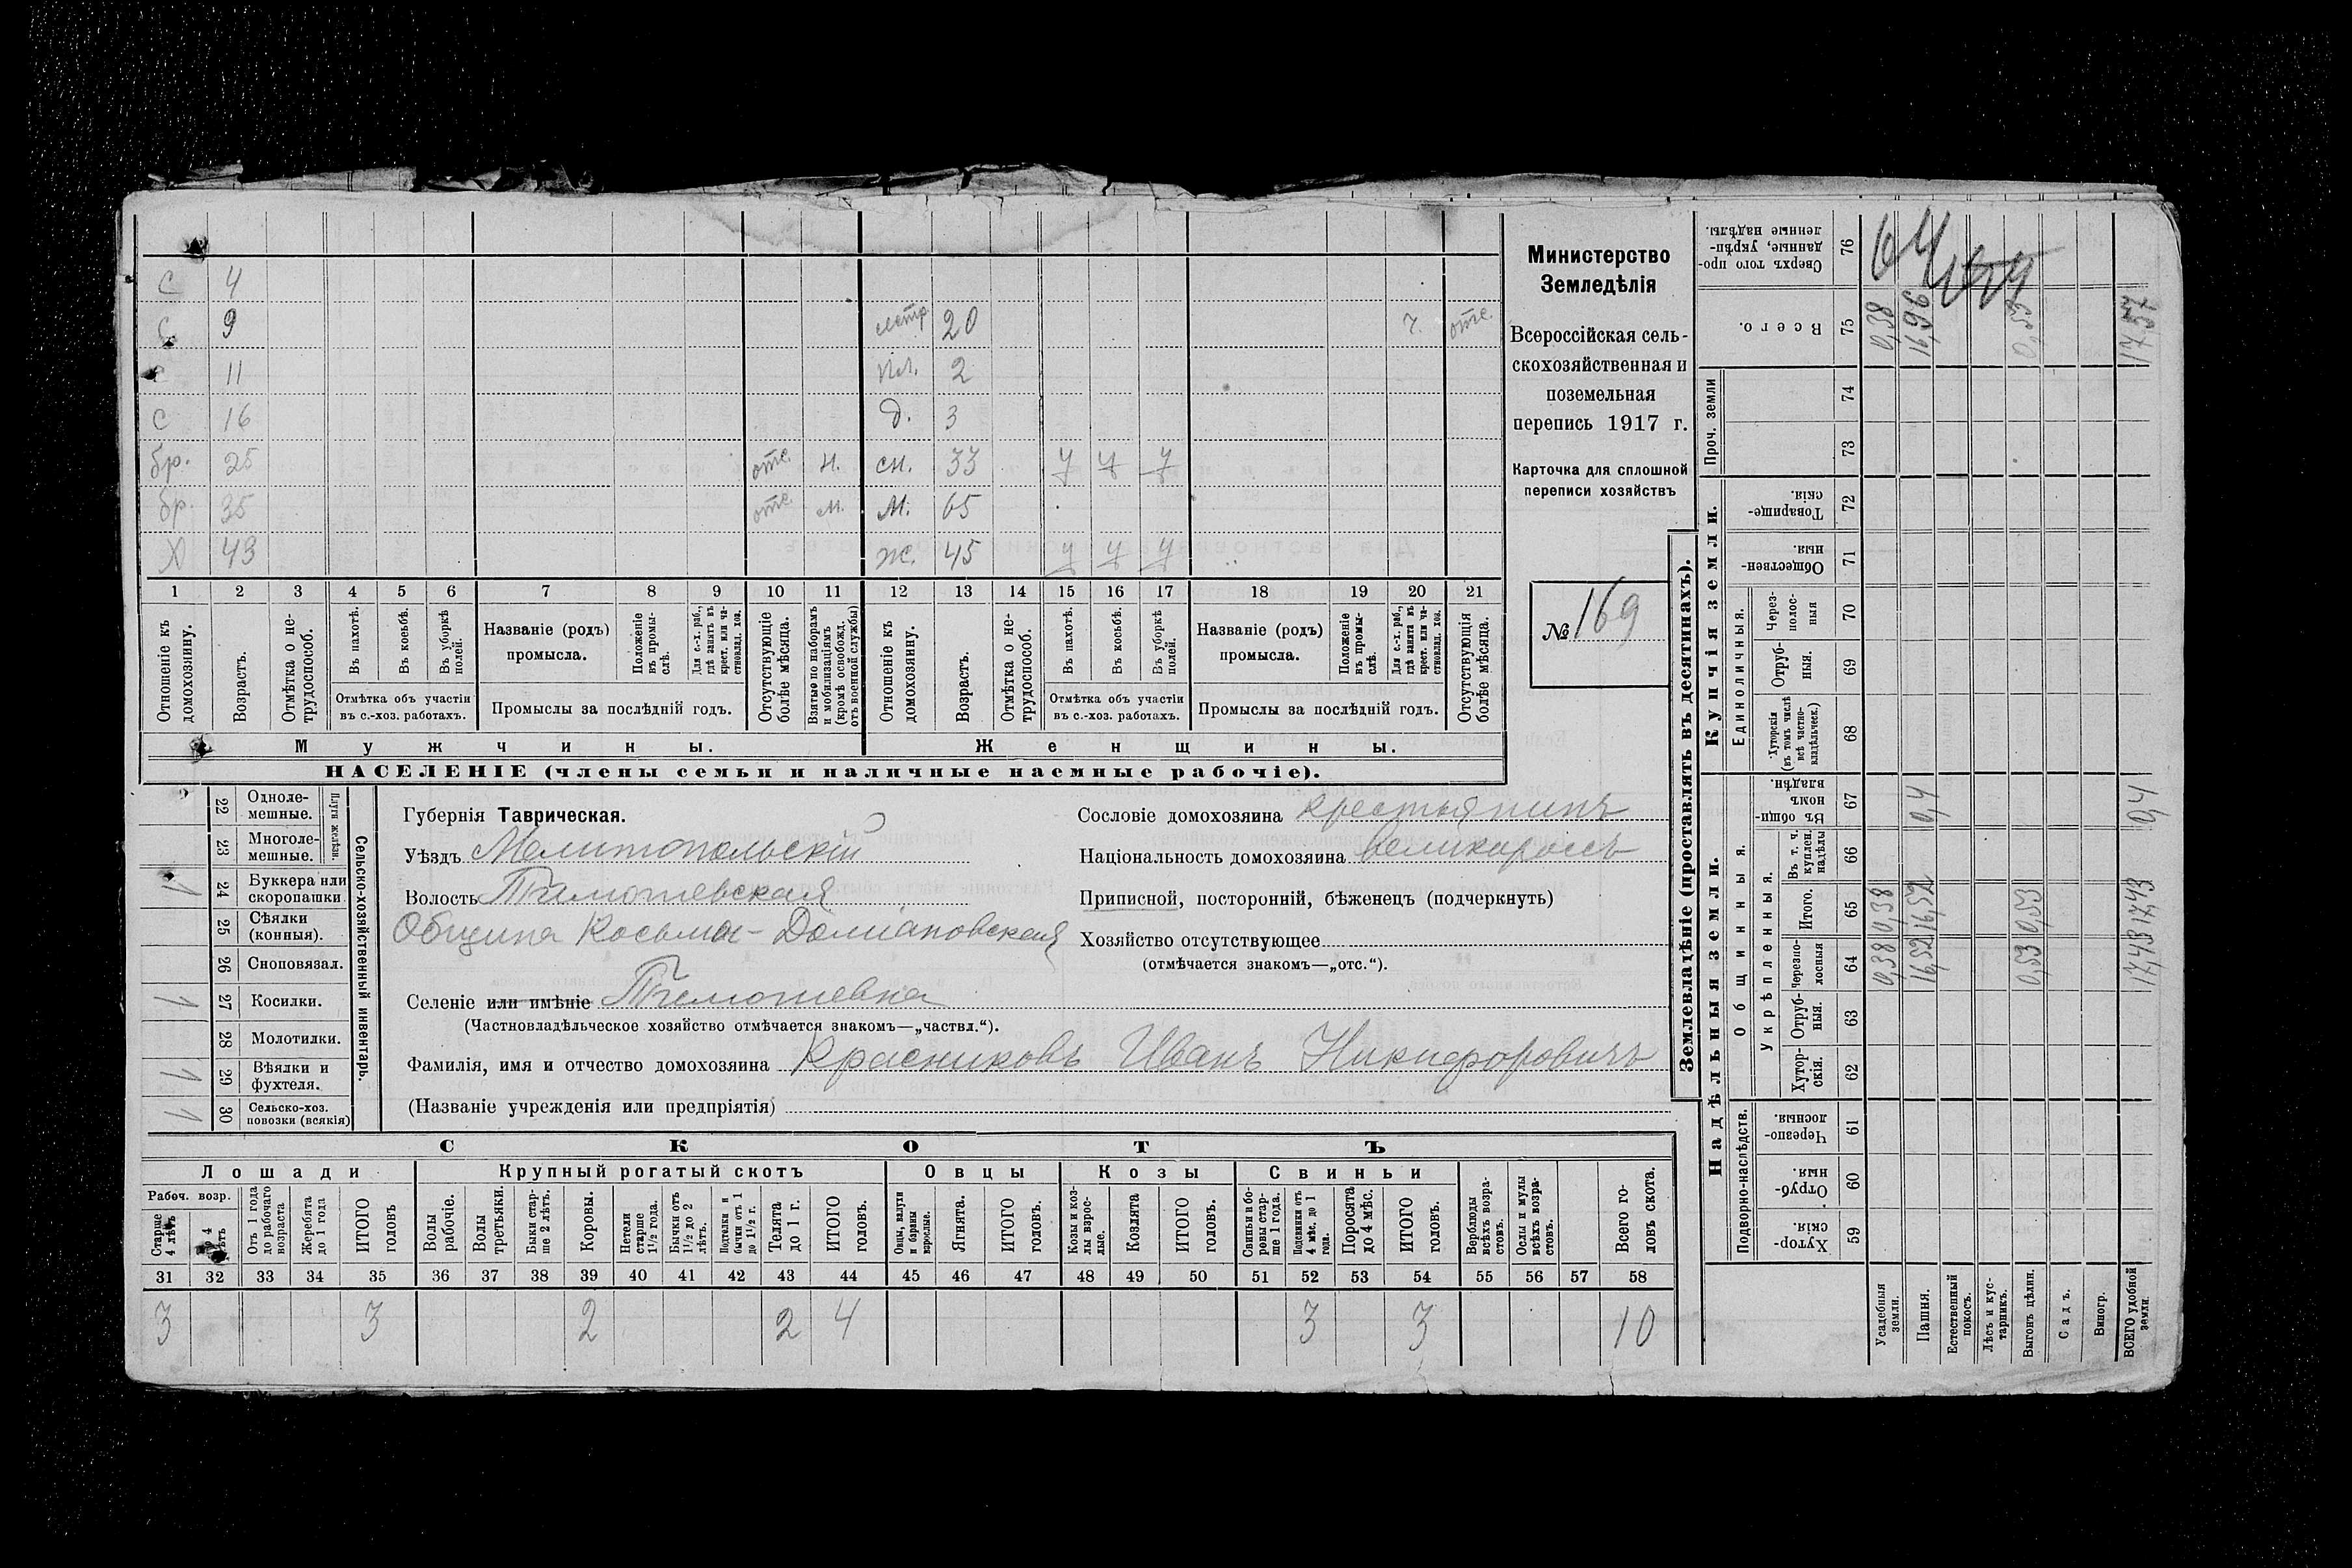 С 4
С 9 сестр. 20 ч. отс.
С 11 пл. 2
С 16 д. 3
бр. 25 отс. н. сн. 33 у у у
бр. 35 отс. м. М. 65
Х 43 Ж. 45 у у у
1 2 3 4 5 6 7 8 9 10 11 12 13 14 15 16 17 18 19 20 21
Отношеніе къ домохозяину.
Возрастъ.
Отмѣтка о нетрудоспособ.
Въ пахотѣ.
Въ косьбѣ.
Въ уборкѣ полей.
Отмѣтка объ участіи въ с.-хоз. работахъ.
Названіе (родъ) промысла.
Положеніе въ промыслѣ.
Для с.-х. раб., гдѣ занятъ въ крест. или частновлад. хоз.
Промыслы за послѣдній годъ.
Отсутствующіе болѣе мѣсяца.
Взятые по наборамъ и мобилизаціямъ (кромѣ освобожд. отъ военной службы)
Отношеніе къ домохозяину.
Возрастъ.
Отмѣтка о нетрудоспособ.
Въ пахотѣ.
Въ косьбѣ.
Въ уборкѣ полей.
Отмѣтка объ участіи въ с.-хоз. работахъ.
Названіе (родъ) промысла.
Положеніе въ промыслѣ.
Для с.-х. раб., гдѣ занята въ крест. или частновлад. хоз.
Промыслы за послѣдній годъ.
Отсутствующія болѣе мѣсяца.
Мужчины. Женщины.
НАСЕЛЕНІЕ (члены семьи и наличные наемные рабочіе).
Министерство
Земледѣлія
Всероссійская сель-
скохозяйственная и
поземельная
перепись 1917 г.
Карточка для сплошной
переписи хозяйствъ
№ 169
Сельско-хозяйственный инвентарь.
Плуги желѣзн.
22 Одноле-
мешные.
23 Многоле-
мешные.
24 Буккера или
скоропашки 1
25 Сѣялки
(конныя).
26 Сноповязал.
27 Косилки. 1
28 Молотилки.
29 Вѣялки и
фухтеля. 1
30 Сельско-хоз.
повозки (всякія) 1
Губернія Таврическая.
Уѣздъ Мелитопольскій
Волость Тимошевская
Община Косьма-Даміановская
Селеніе или имѣніе Тимошевка
(Частновладѣльческое хозяйство отмѣчается знакомъ—„частвл.“).
Фамилія, имя и отчество домохозяина Красниковъ Иванъ Никифоровичъ
(Названіе учрежденія или предпріятія)
Сословіе домохозяина крестьянинъ
Національность домохозяина великороссъ
Приписной, посторонній, бѣженецъ (подчеркнуть)
Хозяйство отсутствующее
(отмѣчается знакомъ—„отс.“).
СКОТЪ
Лошади Крупный рогатый скотъ Овцы Козы Свиньи
Рабоч. возр.
Старше 4 лѣтъ
4 лѣтъ
Отъ 1 года до рабочаго возраста
Жеребята до 1 года
ИТОГО головъ
Волы рабочіе.
Волы третьяки.
Быки старше 2 лѣтъ.
Коровы.
Нетели старше 1½ года.
Бычки отъ 1½ до 2 лѣтъ.
Подтелки и бычки отъ 1 до 1½ г.
Телята до 1 г.
ИТОГО головъ.
Овцы, валухи и бараны взрослые.
Ягнята.
ИТОГО головъ.
Козы и козлы взрослые.
Козлята
ИТОГО головъ.
Свиньи и боровы старше 1 года.
Подсвинки отъ 4 мѣс. до 1 года.
Поросята до 4 мѣс.
ИТОГО головъ.
Верблюды всѣхъ возрастовъ.
Ослы и мулы всѣхъ возрастовъ.
Всего головъ скота.
31 32 33 34 35 36 37 38 39 40 41 42 43 44 45 46 47 48 49 50 51 52 53 54 55 56 57 58
3 3 2 2 4 3 3 10
Землевладѣніе (проставлять въ десятинахъ).
Надѣльныя земли. Купчія земли. Проч. земли
Подворно-наслѣдств.
Общинныя.
Укрѣпленныя.
Единоличныя.
Хуторскія. 59
Отрубныя. 60
Черезполосныя. 61
Хуторскія. 62
Отрубныя. 63
Черезполосныя 64
Итого. 65
Въ т. ч. куплен. надѣлы 66
Въ общинномъ владѣн. 67
Хуторскія (въ томъ числѣ всѣ частновладѣльческ.) 68
Отрубныя. 69
Черезполосныя 70
Общественныя. 71
Товарищескія. 72
73
74
Всего. 75
Сверхъ того проданные, укрѣпленные надѣлы. 76
Усадебныя земли. 0,38 0,38 0,38
Пашня. 16,52 16,52 0,4 16,96
Естественный покосъ.
Лѣсъ и кустарникъ.
Выгонъ цѣлин. 0,53 0,53 0,53
Садъ.
Виногр.
ВСЕГО удобной земли. 17,43 17,43 0,4 17,57